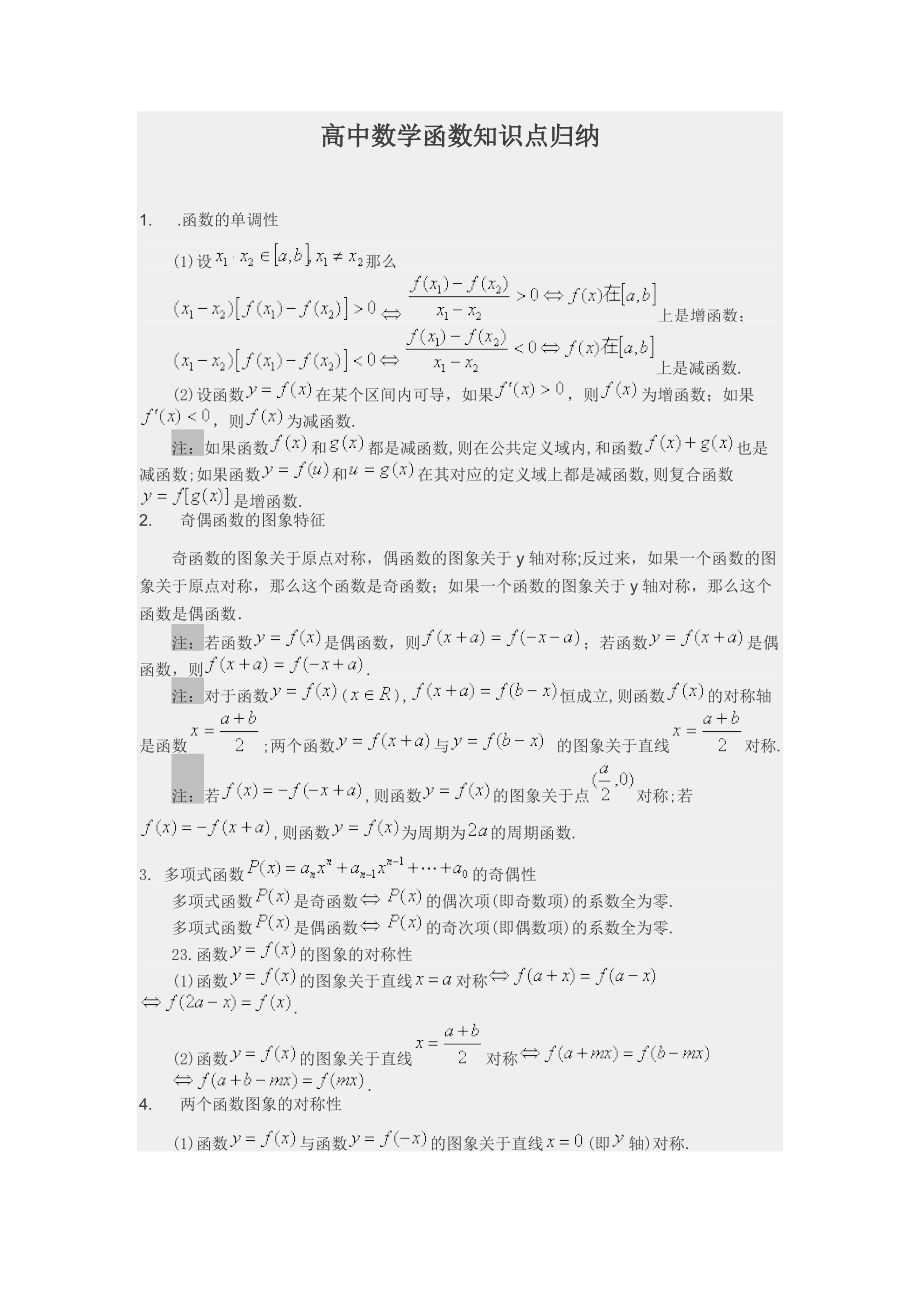 高中数学函数知识点归纳
1. .函数的单调性
(1)设 x₁·x₂∈[a,b],x₁≠x₂那么
(x₁−x₂)[f(x₁)−f(x₂)]>0⇔ (f(x₁)−f(x₂))/(x₁−x₂)>0⇔f(x)在[a,b]上是增函数；
(x₁−x₂)[f(x₁)−f(x₂)]<0⇔ (f(x₁)−f(x₂))/(x₁−x₂)<0⇔f(x)在[a,b]上是减函数.
(2)设函数y=f(x)在某个区间内可导，如果f′(x)>0，则f(x)为增函数；如果
f′(x)<0，则f(x)为减函数.
注：如果函数f(x)和g(x)都是减函数,则在公共定义域内,和函数f(x)+g(x)也是
减函数;如果函数y=f(u)和u=g(x)在其对应的定义域上都是减函数,则复合函数
y=f[g(x)]是增函数.
2. 奇偶函数的图象特征
奇函数的图象关于原点对称，偶函数的图象关于y轴对称;反过来，如果一个函数的图
象关于原点对称，那么这个函数是奇函数；如果一个函数的图象关于y轴对称，那么这个
函数是偶函数．
注：若函数y=f(x)是偶函数，则f(x+a)=f(−x−a)；若函数y=f(x+a)是偶
函数，则f(x+a)=f(−x+a).
注：对于函数y=f(x)(x∈R),f(x+a)=f(b−x)恒成立,则函数f(x)的对称轴
是函数x=(a+b)/2;两个函数y=f(x+a)与y=f(b−x) 的图象关于直线x=(a+b)/2对称.
注：若f(x)=−f(−x+a),则函数y=f(x)的图象关于点(a/2,0)对称;若
f(x)=−f(x+a),则函数y=f(x)为周期为2a的周期函数.
3. 多项式函数P(x)=aₙxⁿ+aₙ₋₁xⁿ⁻¹+⋯+a₀的奇偶性
多项式函数P(x)是奇函数⇔P(x)的偶次项(即奇数项)的系数全为零.
多项式函数P(x)是偶函数⇔P(x)的奇次项(即偶数项)的系数全为零.
23.函数y=f(x)的图象的对称性
(1)函数y=f(x)的图象关于直线x=a对称⇔f(a+x)=f(a−x)
⇔f(2a−x)=f(x).
(2)函数y=f(x)的图象关于直线x=(a+b)/2对称⇔f(a+mx)=f(b−mx)
⇔f(a+b−mx)=f(mx).
4. 两个函数图象的对称性
(1)函数y=f(x)与函数y=f(−x)的图象关于直线x=0(即y轴)对称.